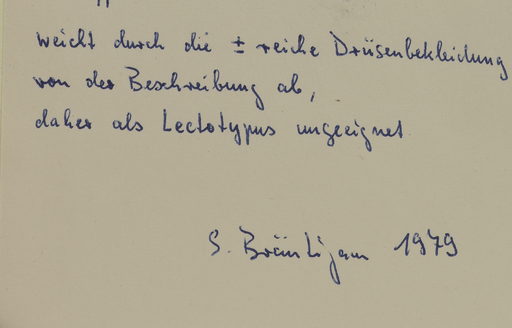 weicht durch die ± reiche Drüsenbekleidung
von der Beschreibung ab,
daher als Lectotypus ungeeignet
S. Bräutigam 1979